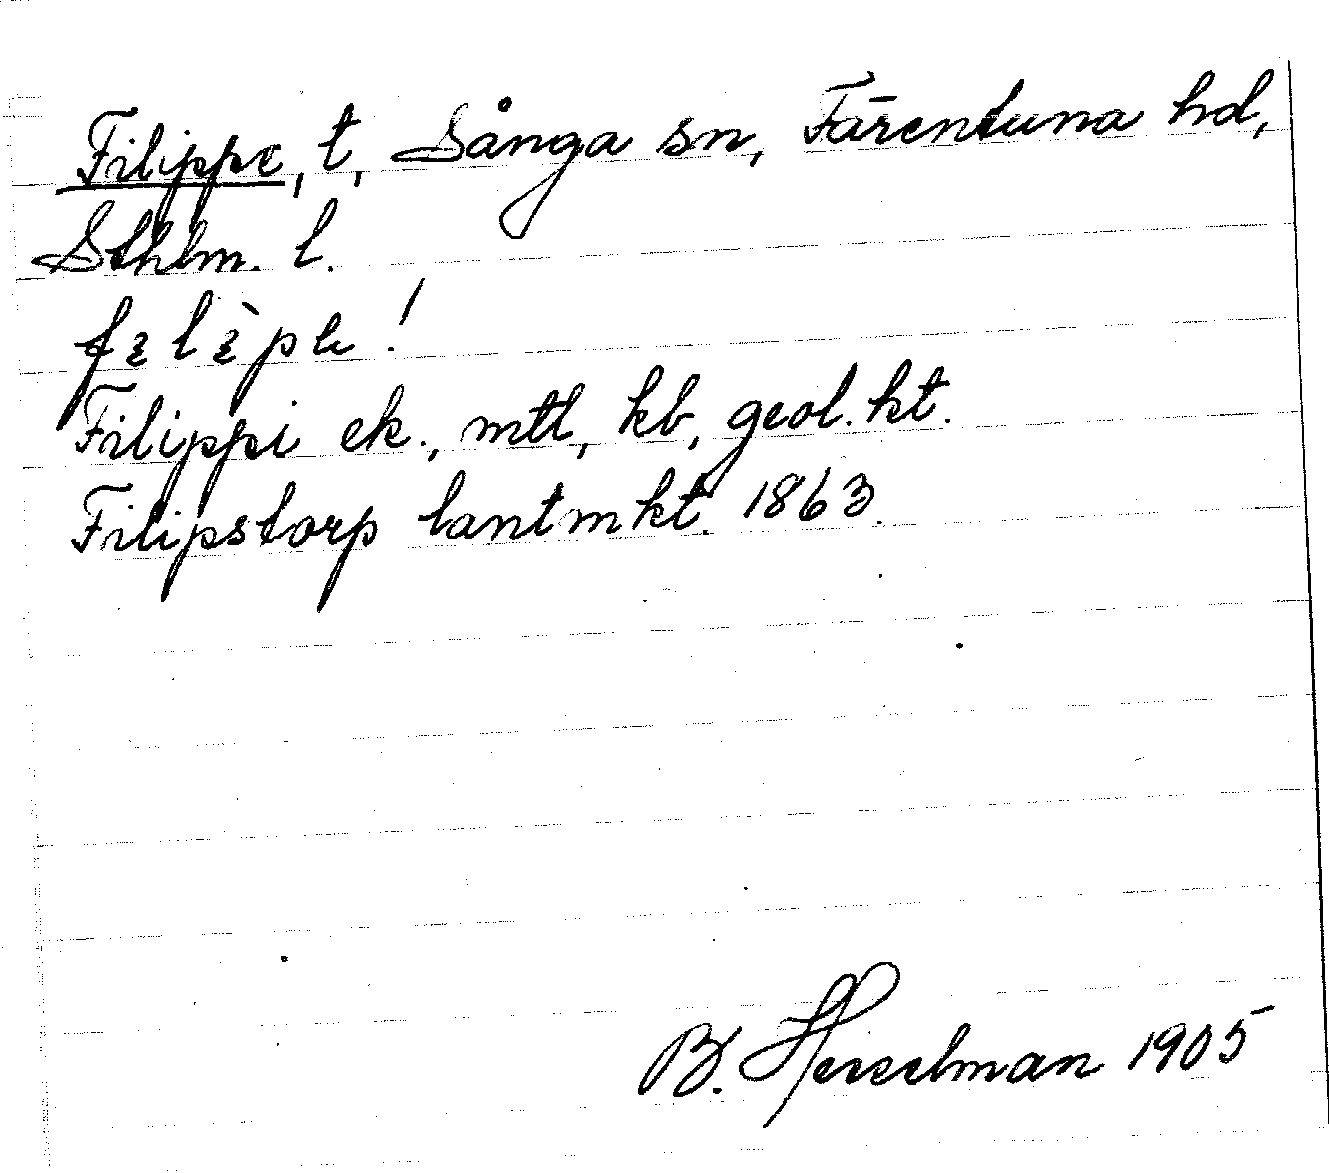 Filippe, t, Sånga sn, Färentuna hd,
Sthlm. l.
Filippi ek., mtl, kb, geol. kt.
Filipstorp lantmkt. 1863.
B. Hesselman 1905